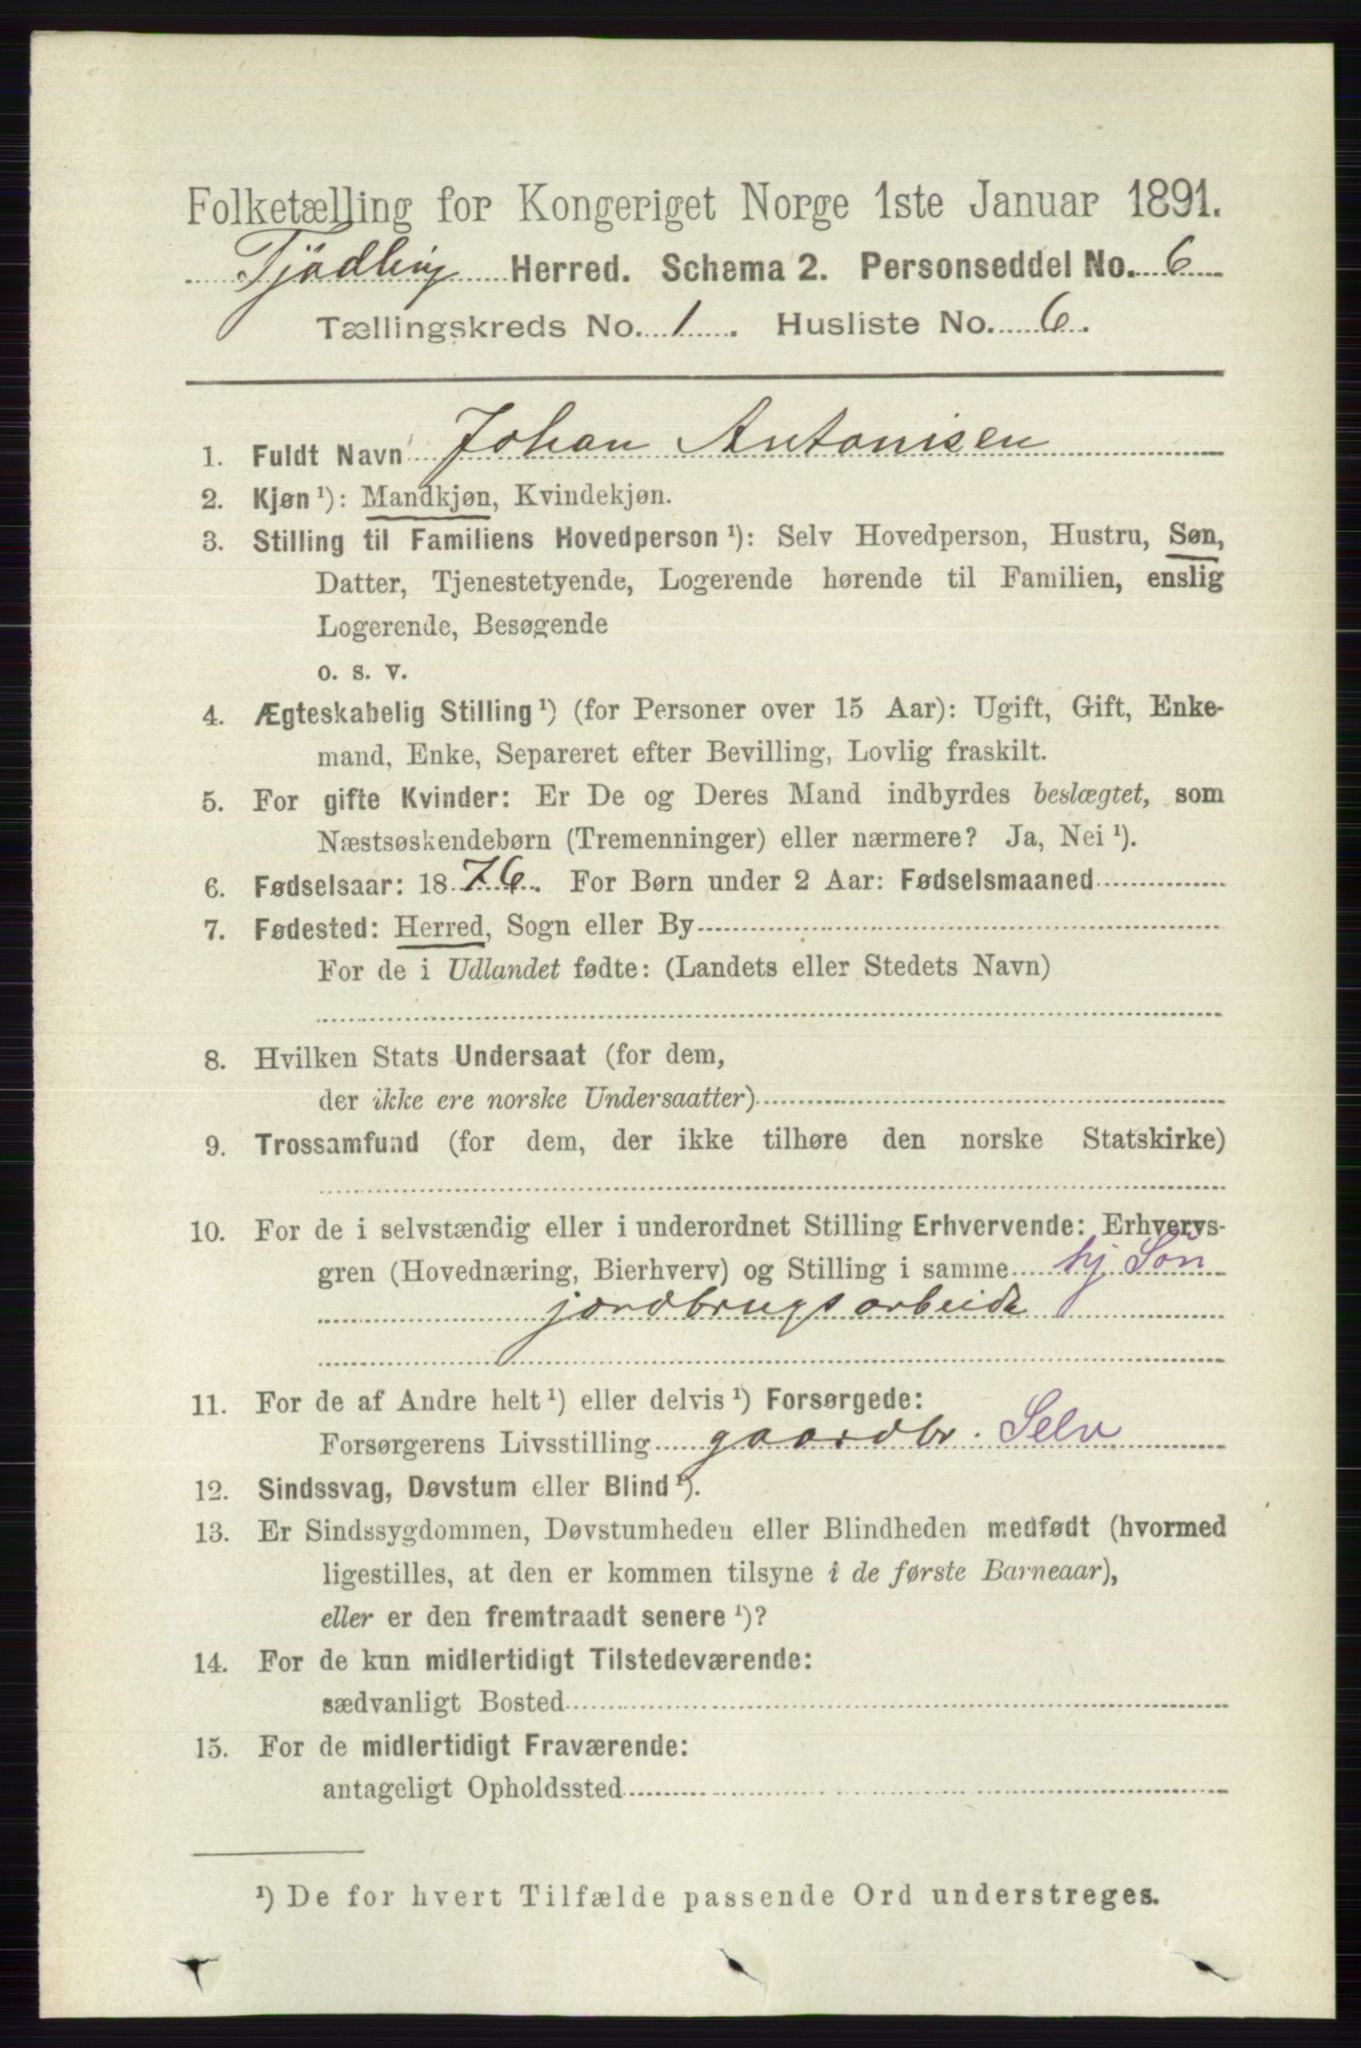 Folketælling for Kongeriget Norge 1ste Januar 1891.
Tjödling Herred. Schema 2. Personseddel No. 6
Tællingskreds No. 1. Husliste No. 6.
1. Fuldt Navn Johan Antonisen
2. Kjøn ¹): Mandkjøn, Kvindekjøn.
3. Stilling til Familiens Hovedperson ¹): Selv Hovedperson, Hustru, Søn,
Datter, Tjenestetyende, Logerende hørende til Familien, enslig
Logerende, Besøgende
o. s. v.
4. Ægteskabelig Stilling ¹) (for Personer over 15 Aar): Ugift, Gift, Enke-
mand, Enke, Separeret efter Bevilling, Lovlig fraskilt.
5. For gifte Kvinder: Er De og Deres Mand indbyrdes beslægtet, som
Næstsøskendebørn (Tremenninger) eller nærmere? Ja, Nei ¹).
6. Fødselsaar: 1876. For Børn under 2 Aar: Fødselsmaaned
7. Fødested: Herred, Sogn eller By
For de i Udlandet fødte: (Landets eller Stedets Navn)
8. Hvilken Stats Undersaat (for dem,
der ikke ere norske Undersaatter)
9. Trossamfund (for dem, der ikke tilhøre den norske Statskirke)
10. For de i selvstændig eller i underordnet Stilling Erhvervende: Erhvervs-
gren (Hovednæring, Bierhverv) og Stilling i samme hj. Søn
jordbrugsarbeide
11. For de af Andre helt ¹) eller delvis ¹) Forsørgede:
Forsørgerens Livsstilling gaardbr. Selv
12. Sindssvag, Døvstum eller Blind ¹).
13. Er Sindssygdommen, Døvstumheden eller Blindheden medfødt (hvormed
ligestilles, at den er kommen tilsyne i de første Barneaar),
eller er den fremtraadt senere ¹)?
14. For de kun midlertidigt Tilstedeværende:
sædvanligt Bosted
15. For de midlertidigt Fraværende:
antageligt Opholdssted
¹) De for hvert Tilfælde passende Ord understreges.